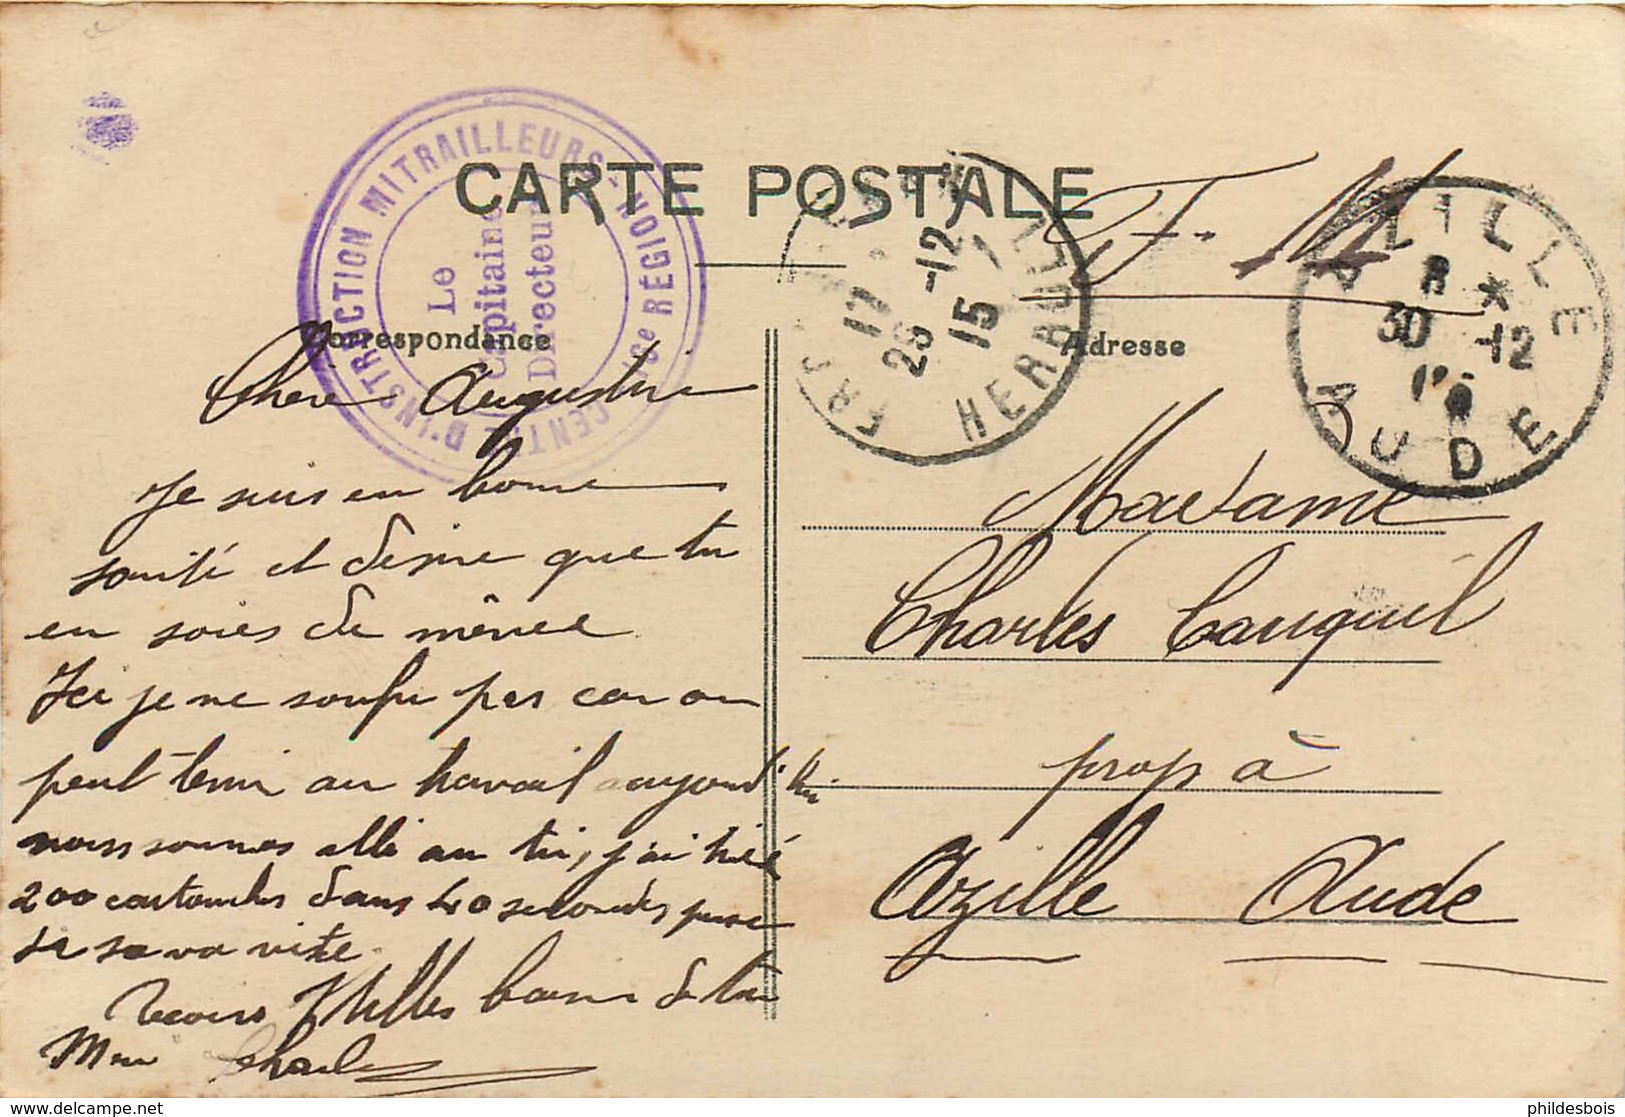 CENTRE D'INSTRUCTION MITRAILLEURS
RÉGION
Le
Capitaine
Directeur
CARTE POSTALE
F. M.
HERAULT
17
28 -12
15
AZILLE
8 *
30 -12
AUDE
Correspondance
Adresse
Chère Augustine
Je suis en bonne
santé et désire que tu
en soies de même
Ici je ne soufri pas car on
peut tenir au travail aujourd'hui
nous sommes allé au tir, j'ai tiré
200 cartouches dans 40 secondes pense
si sa va vite
Recois Milles baisers de ton
Mari Charles
Madame
Charles Cauquil
prop à
Azille Aude
phildesbois